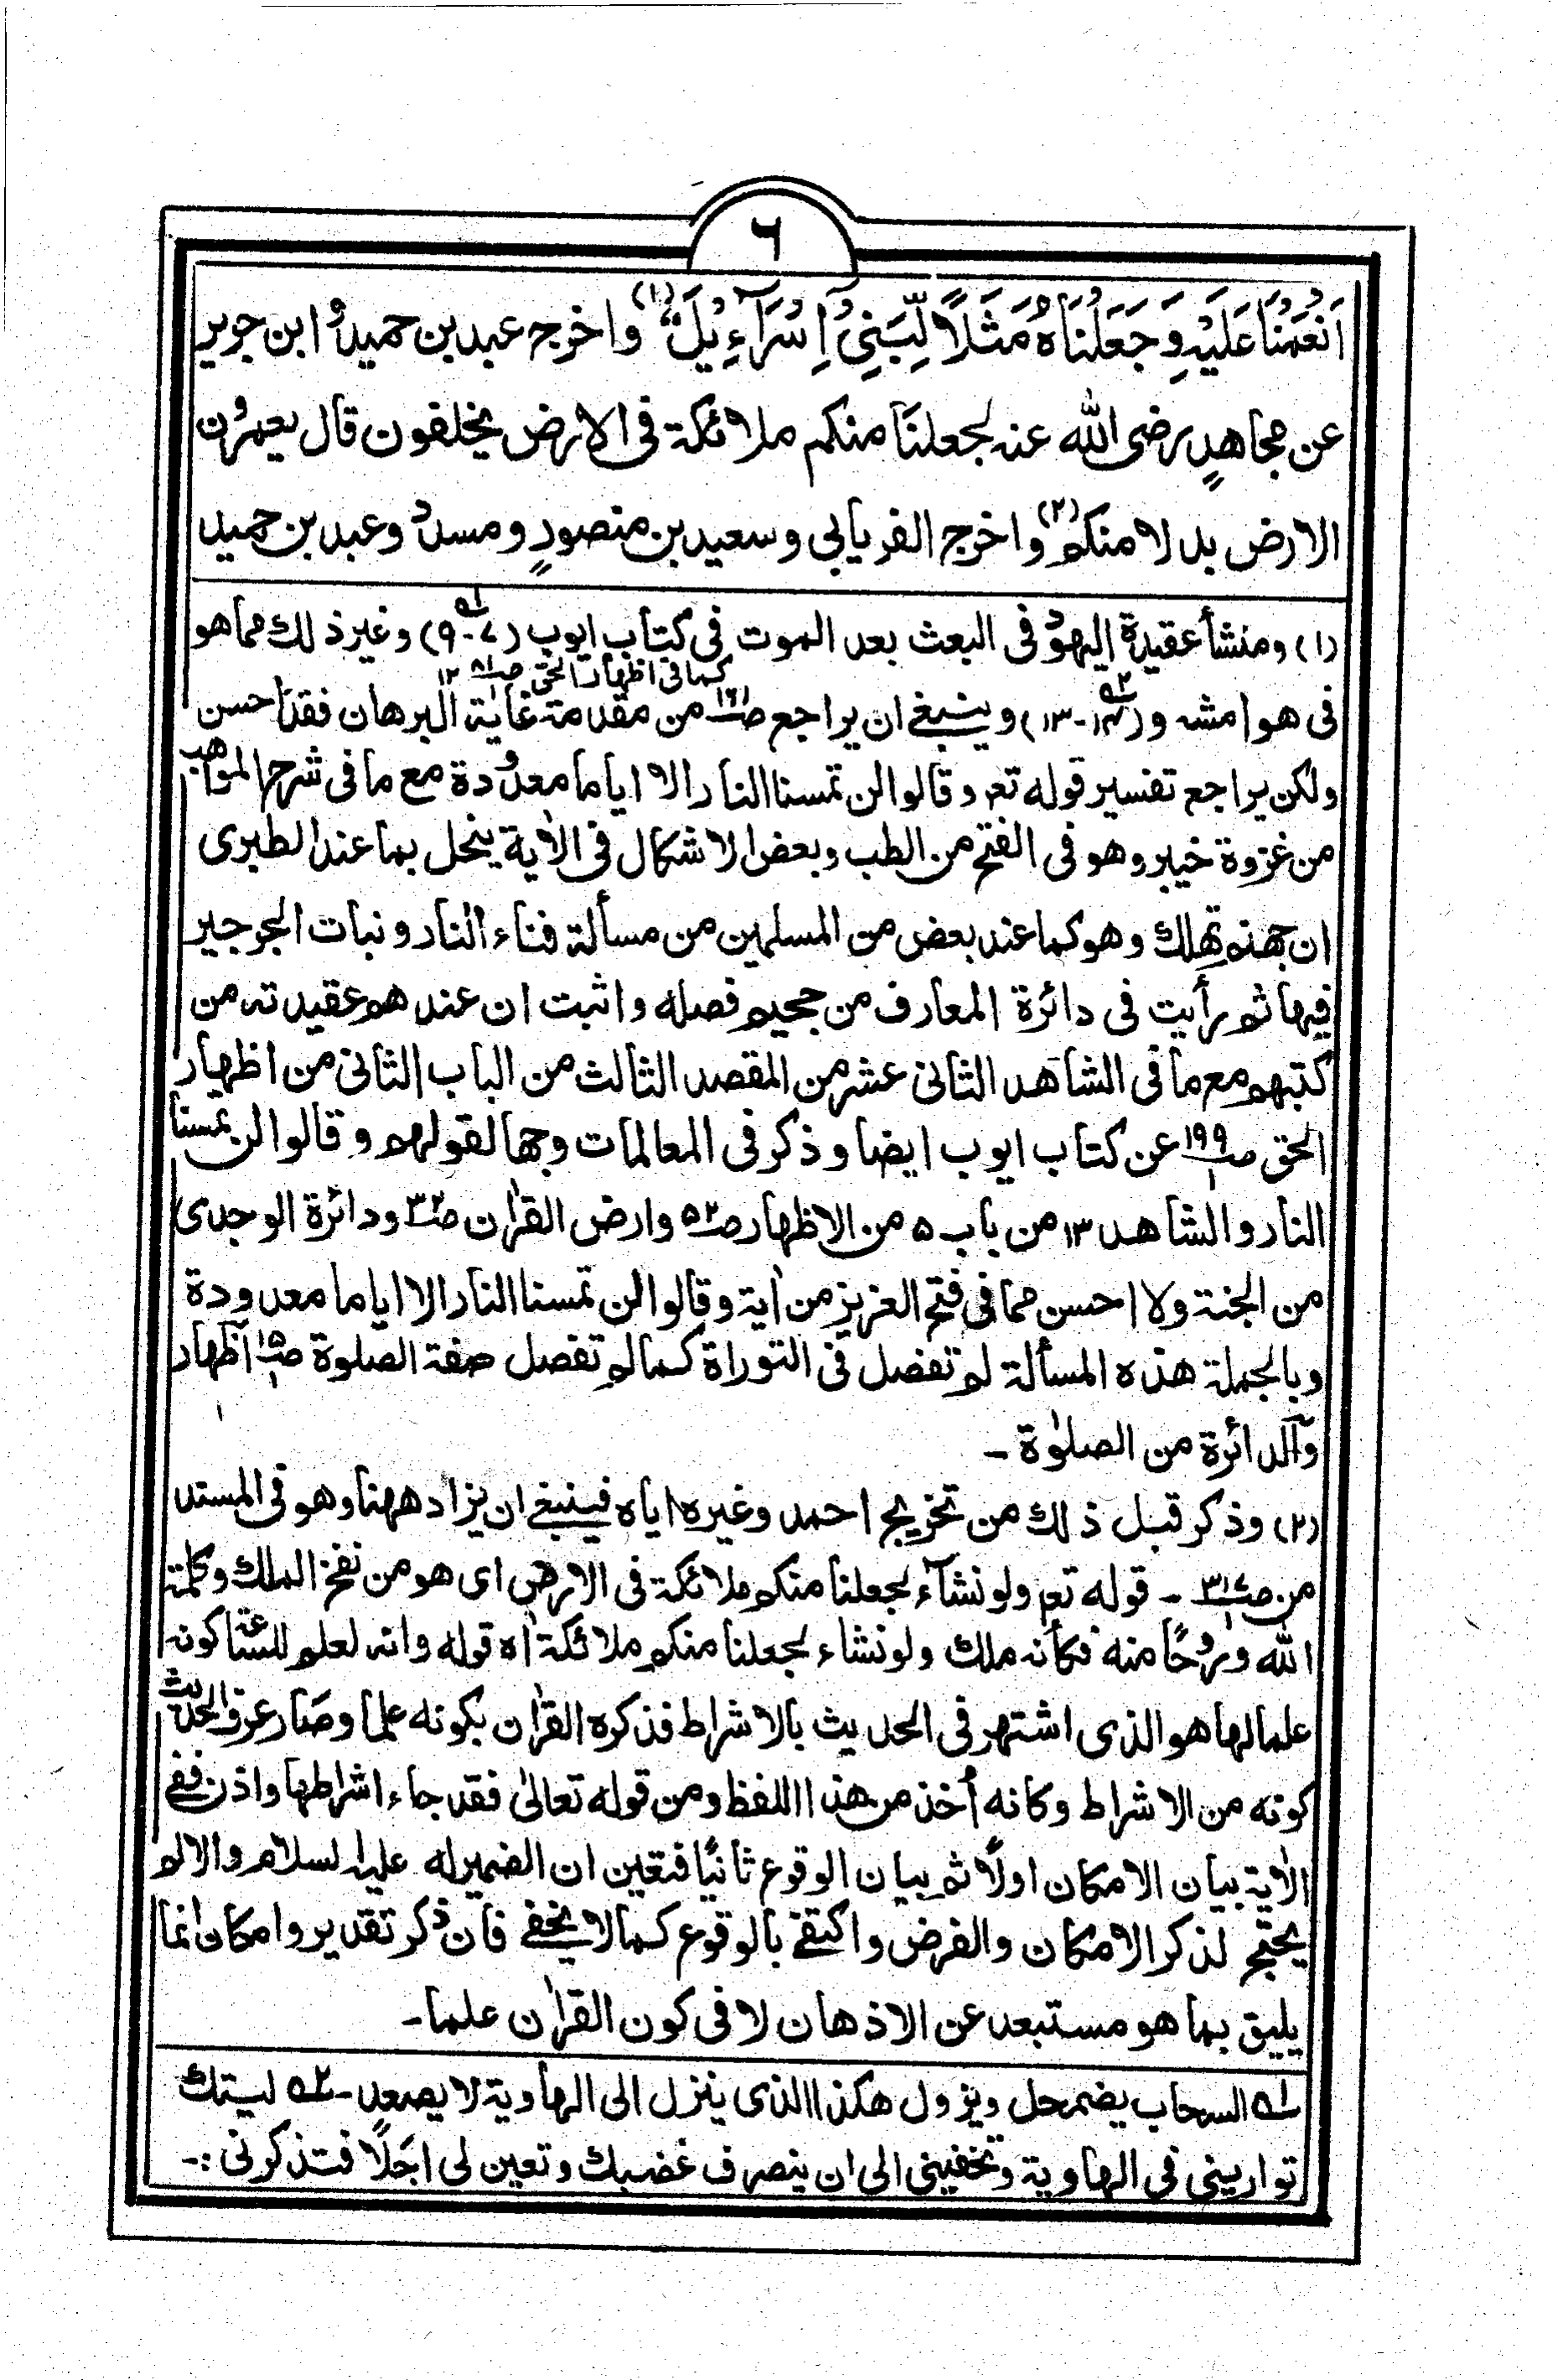 ٦
اَنْعَمْنَا عَلَيْهِ وَجَعَلْنَاهُ مَثَلًا لِّبَنِىْ اِسْرَآءِيْلَ" (١) واخرج عبد بن حميد و ابن جرير
عن مجاهدٍ رضى الله عنه لجعلنا منكم ملائكة فى الارض يخلفون قال يعمرون
الارض بدلا منكم (٢) واخرج الفريابي وسعيد بن منصورٍ ومسدد وعبد بن حميد
(١) ومنشأ عقيدة اليهود فى البعث بعد الموت فى كتاب ايوب (٧-٩) ؁١ وغير ذلك مما هو
كما فى اظهار الحق صـ٨١ ١٢
فى هوامشه و (١٤-١٣) ؁٢ وينبغى ان يراجع صـ١٦١ من مقدمة غاية البرهان فقد احسن
ولكن يراجع تفسير قوله تع وقالوا لن تمسنا النار الا اياما معدودة مع ما فى شرح المواهب
من غزوة خيبر وهو فى الفتح من الطب وبعض الاشكال فى الاٰية ينحل بما عند الطبرى
ان جهنم تهلك وهو كما عند بعض من المسلمين من مسألة فناء النار ونبات الجرجير
فيها ثم رأيت فى دائرة المعارف من جحيم فصله واثبت ان عند هم عقيدته من
كتبهم مع ما فى الشاهد الثانى عشر من المقصد الثالث من الباب الثانى من اظهار
الحق صـ١٩٩/١ عن كتاب ايوب ايضا وذكر فى المعالمات وجها لقولهم وقالوا لن تمسنا
النار والشاهد ١٣ من باب ٥ من الاظهار صـ٥٢ وارض القراٰن صـ٣٢ ودائرة الوجدى
من الجنة ولا احسن مما فى فتح العزيز من اٰية وقالوا لن تمسنا النار الا اياما معدودة
وبالجملة هذه المسألة لم تفصل فى التوراة كما لم تفصل صفة الصلوة صـ١٥/١ اظهار
والدائرة من الصلوٰة -
(٢) وذكر قبل ذلك من تخريج احمد وغيره اياه فينبغى ان يزاد ههنا وهو فى المسند
من صـ٣١٧/١ - قوله تع ولو نشآء لجعلنا منكم ملائكة فى الارض اى هو من نفخ الملك وكلمة
الله وروحًا منه فكأنه ملك ولو نشاء لجعلنا منكم ملائكة اه قوله وانه لعلم للساعة كونه
علما لها هو الذى اشتهر فى الحديث بالاشراط فذكره القراٰن بكونه علما وصار عرف الحديث
كونه من الاشراط وكانه أخذ من هذا اللفظ ومن قوله تعالىٰ فقد جاء اشراطها واذن ففى
الاٰية بيان الامكان اولًا ثم بيان الوقوع ثانيًا فتعين ان الضمير له عليه السلام والالم
يحتج لذكر الامكان والفرض واكتفى بالوقوع كما لا يخفى فان ذكر تقدير وامكان انما
يليق بما هو مستبعد عن الاذهان لا فى كون القراٰن علما-
؁١ السحاب يضمحل ويزول هكذا الذى ينزل الى الهاوية لا يصعد- ؁٢ ليتك
تواريني فى الهاوية وتخفينى الى ان ينصرف غضبك وتعين لى اجلًا فتذكرنى :-